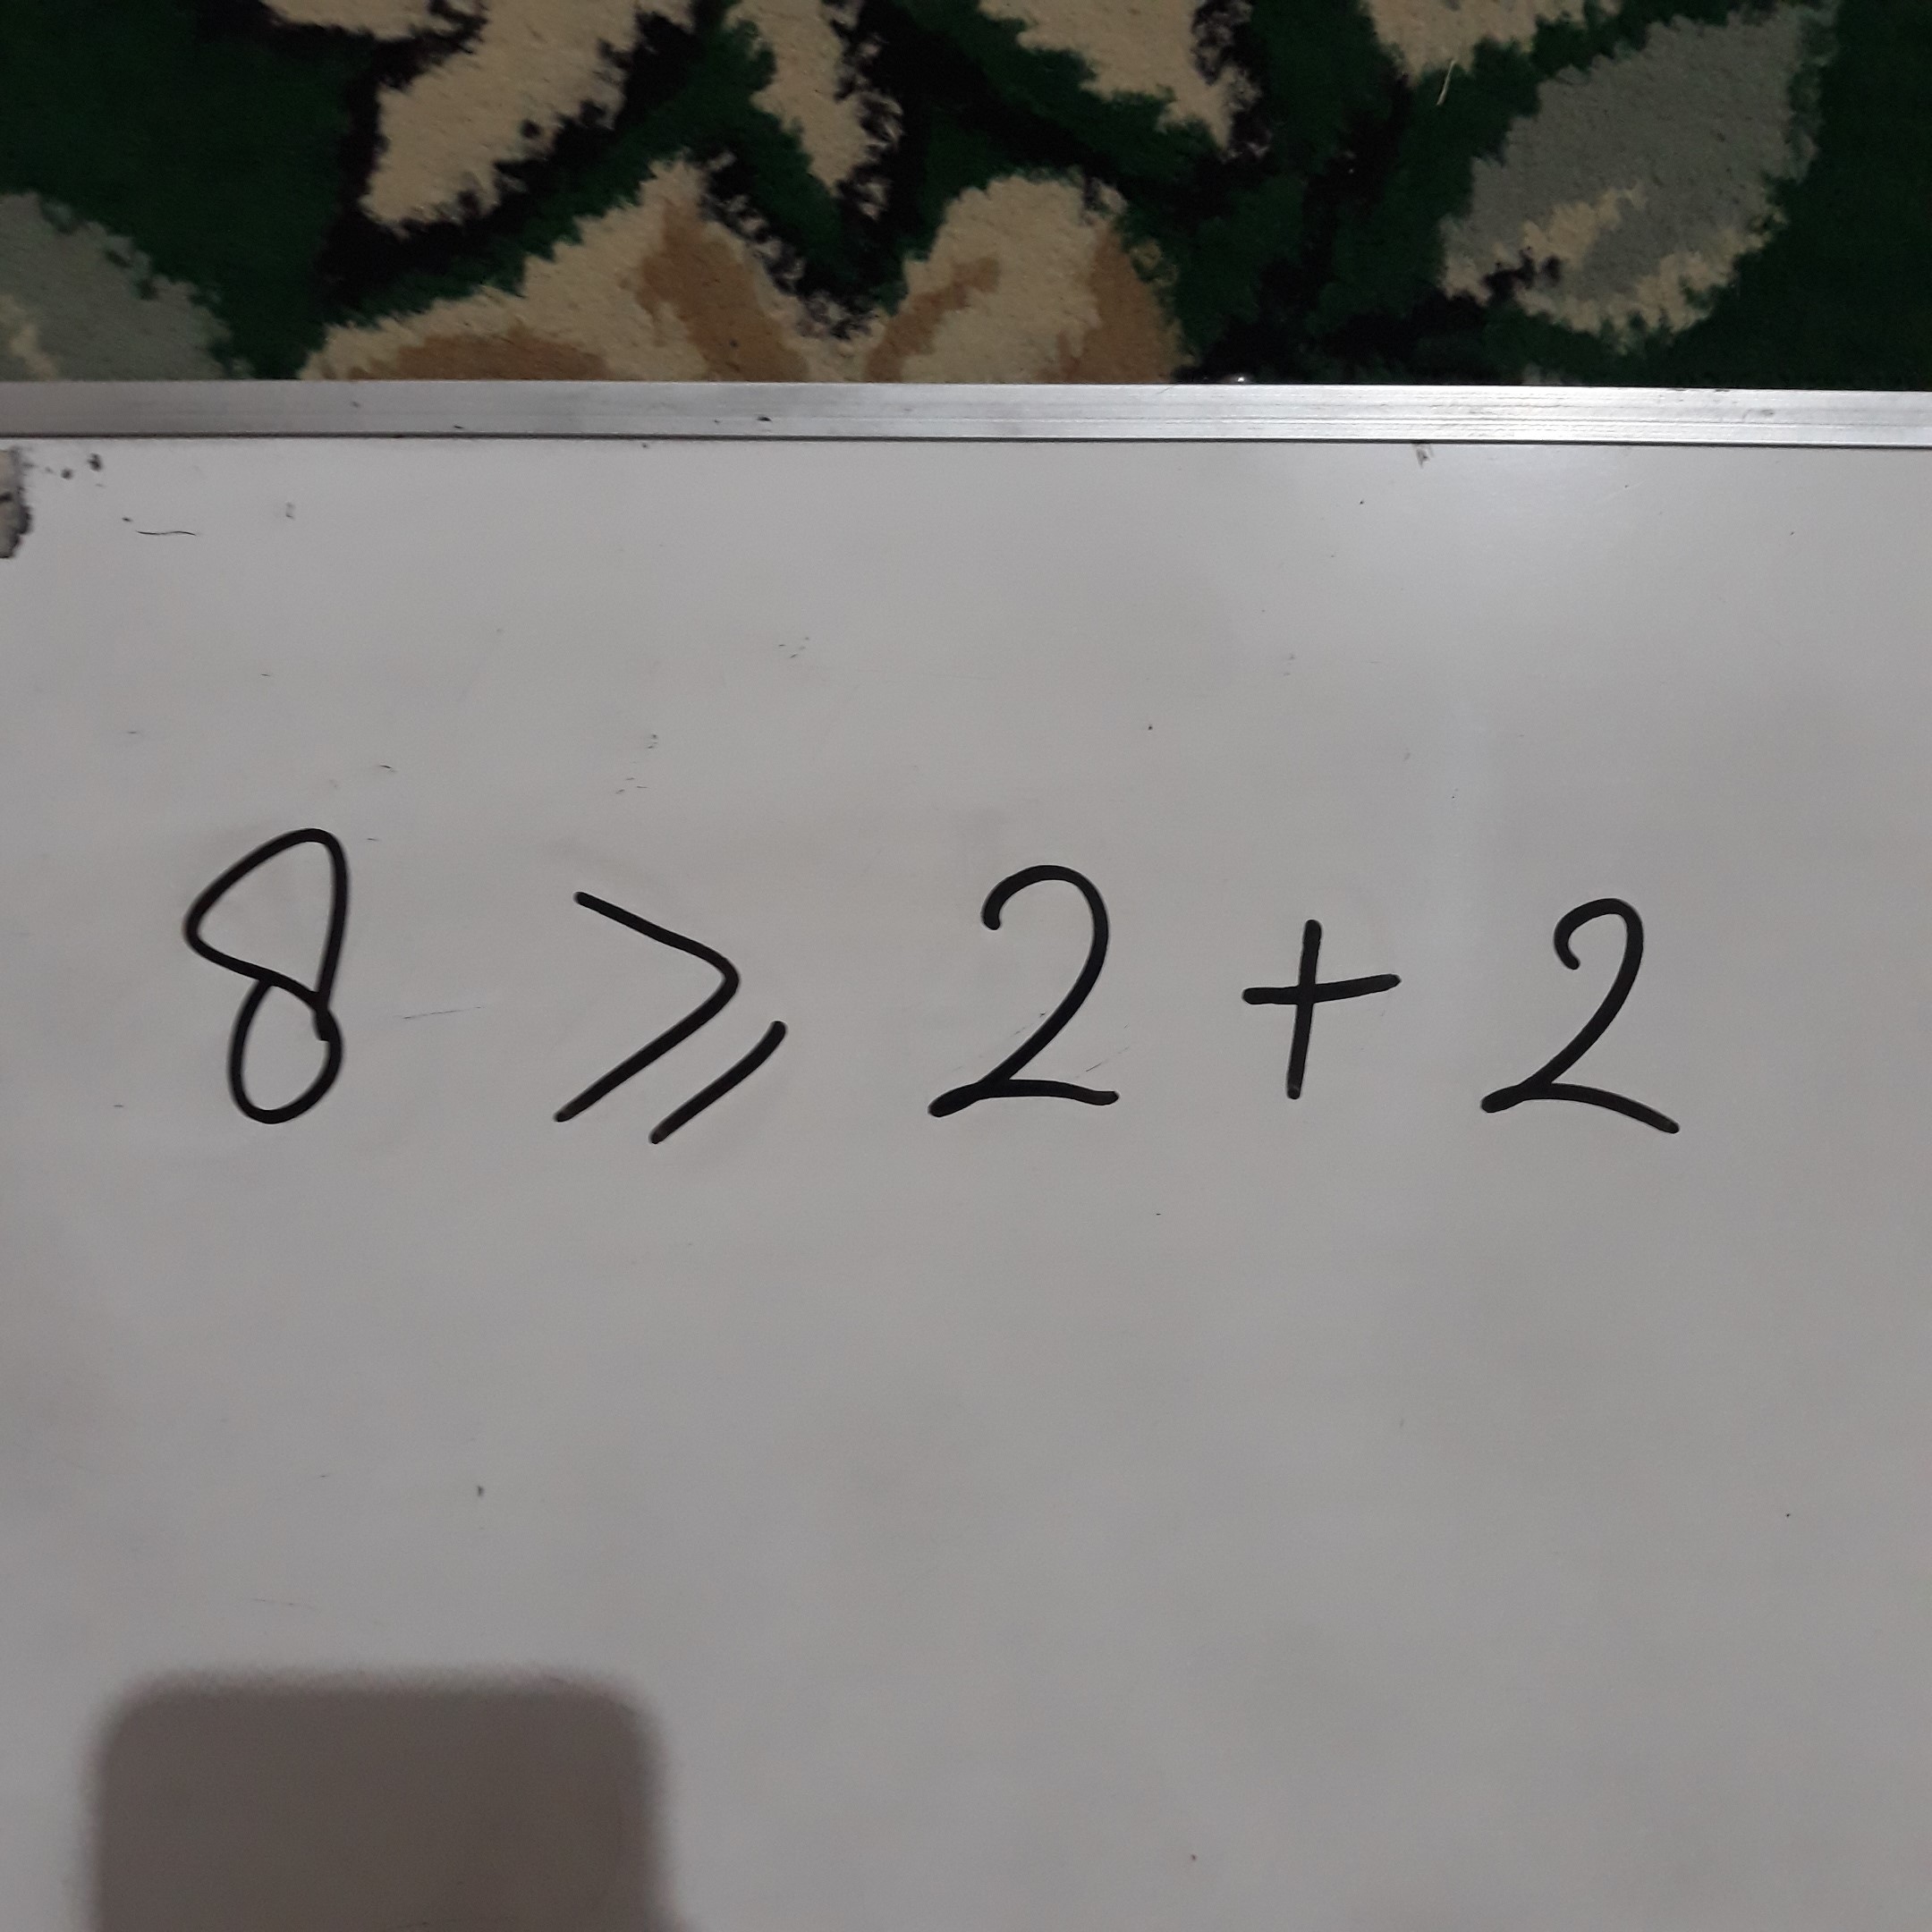 8 ⩾ 2 + 2